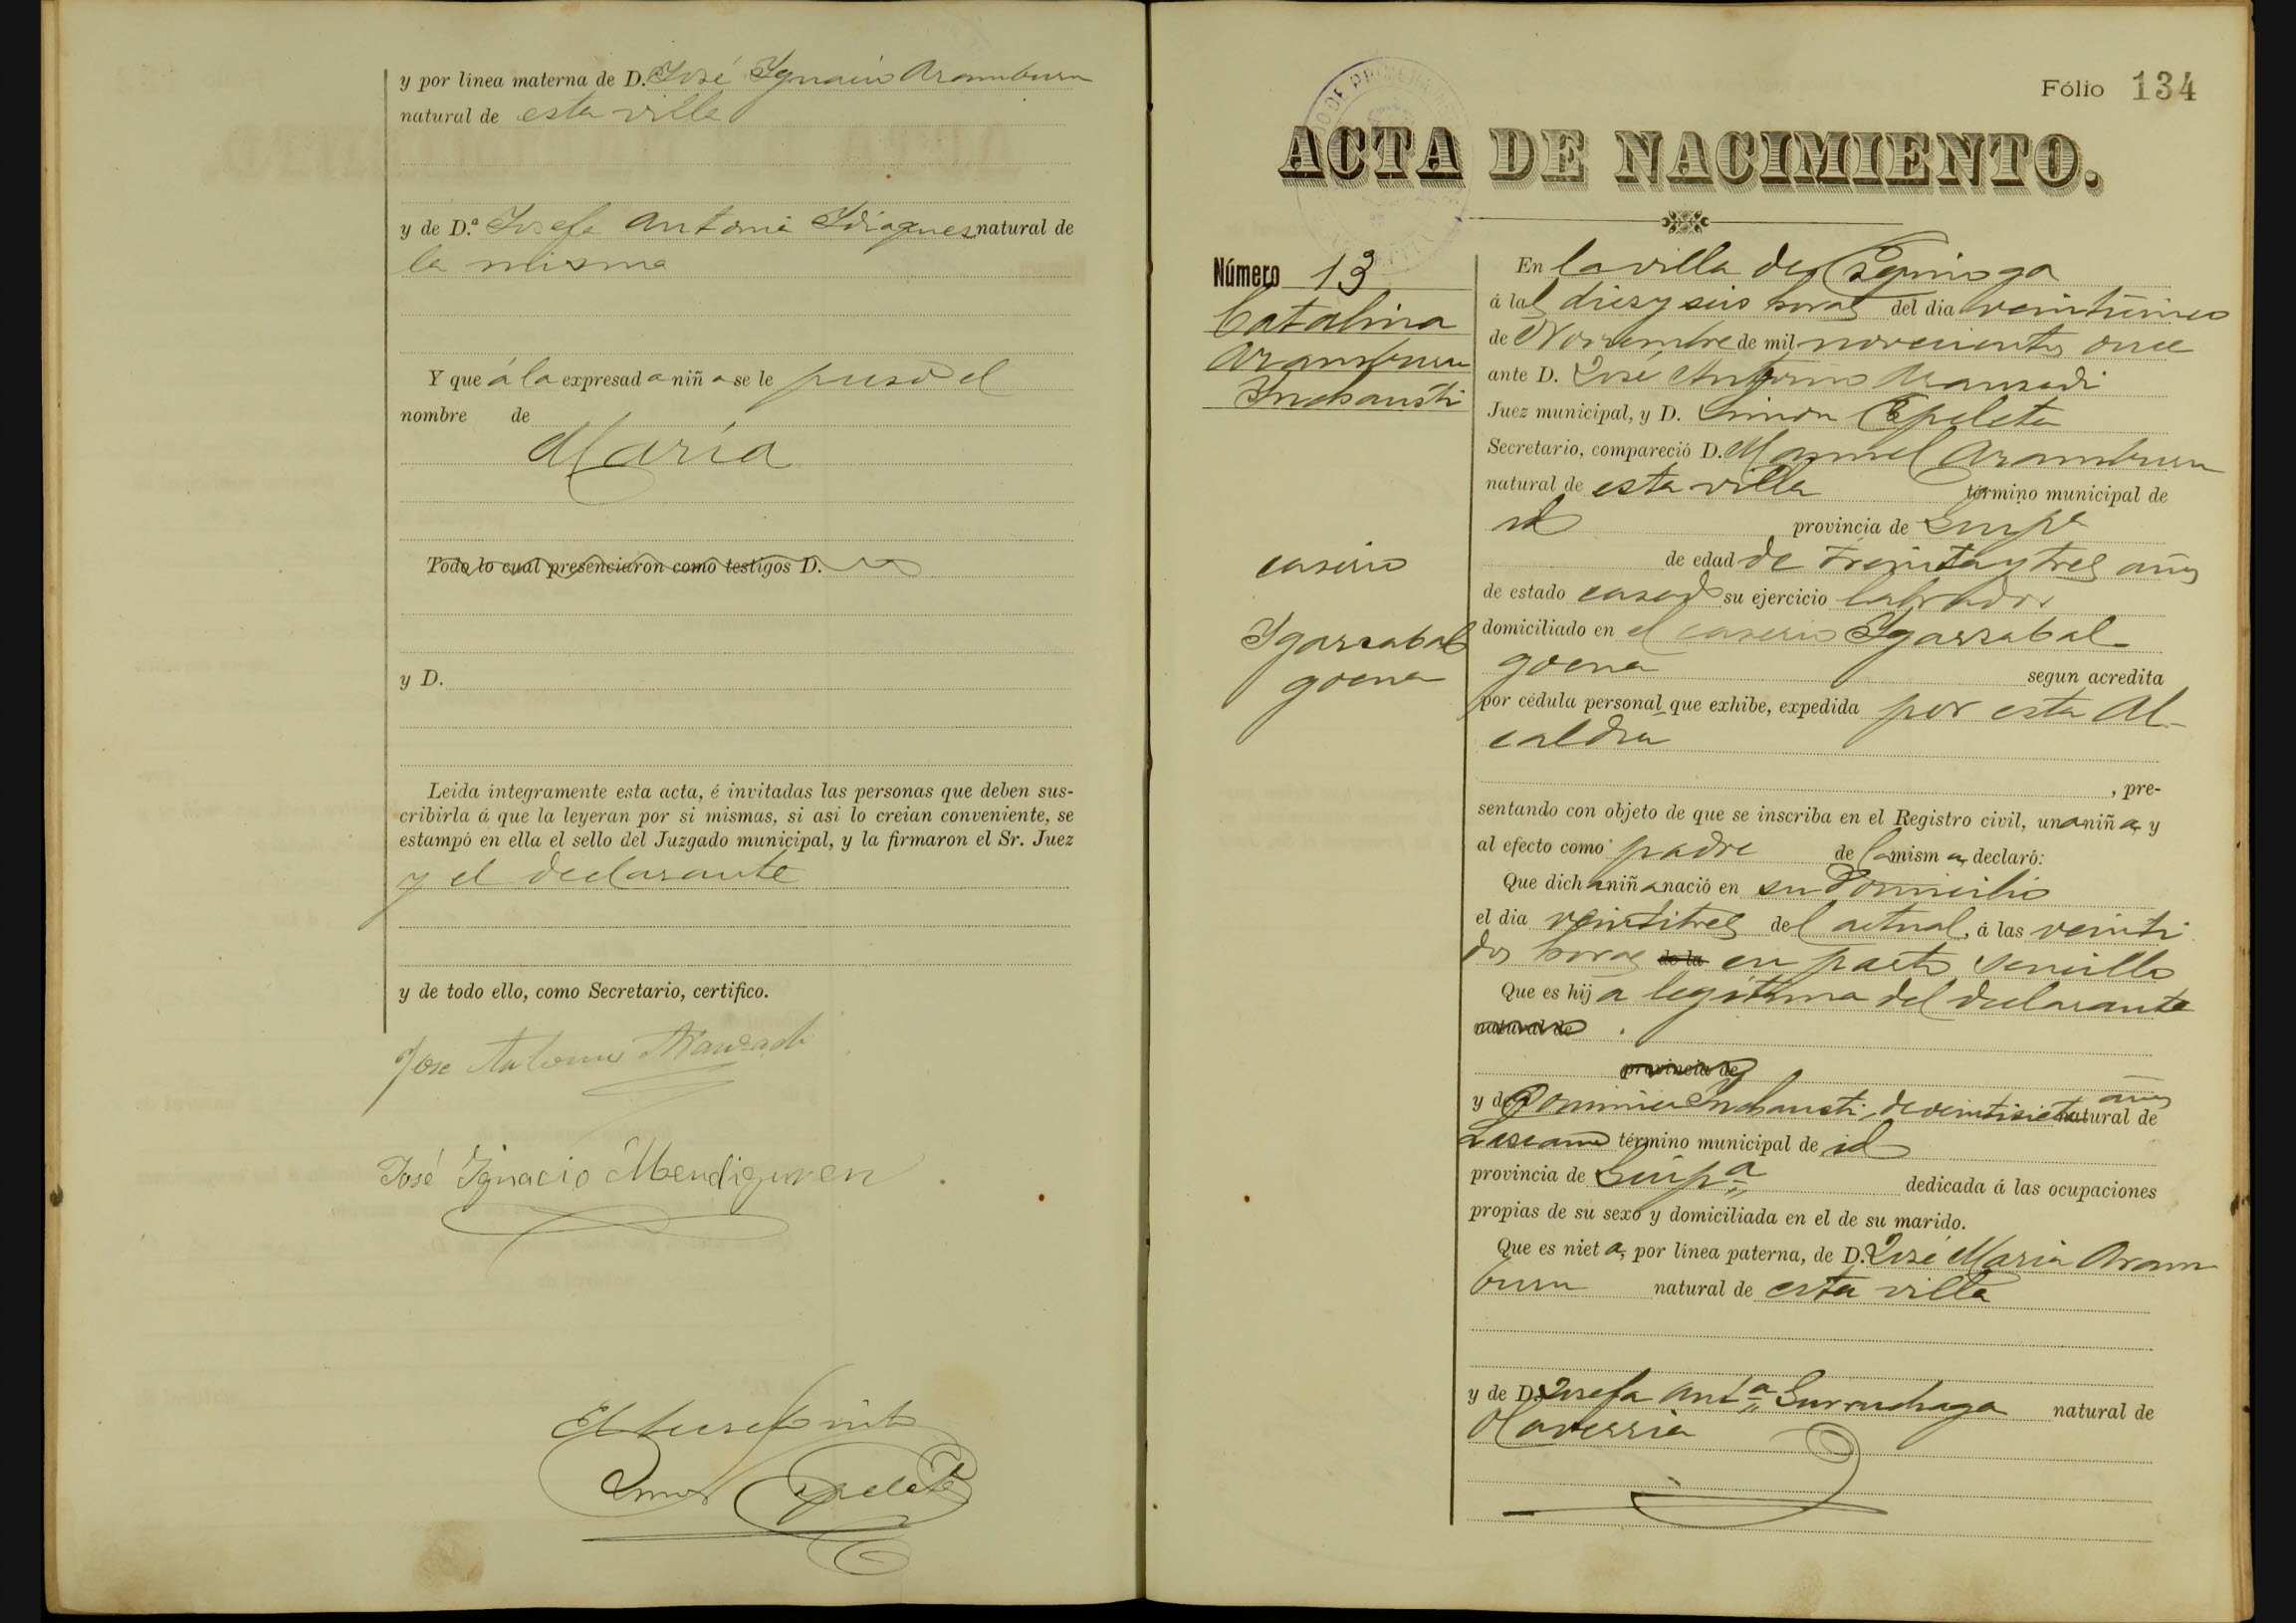 y por linea materna de D. José Ygnacio Aramburu
natural de esta villa
y de D.ª Josefa Antonia Ydiaquez natural de
la misma
Y que á la expresada niña se le puso el
nombre de
María
Todo lo cual presenciaron como testigos D.
y D.
Leida integramente esta acta, é invitadas las personas que deben sus-
cribirla á que la leyeran por si mismas, si asi lo creian conveniente, se
estampó en ella el sello del Juzgado municipal, y la firmaron el Sr. Juez
y el declarante
y de todo ello, como Secretario, certifico.
Jose Antonio Aranzadi
José Ygnacio Mendiguren
El Secretario
Simon Epelete
Fólio 134
ACTA DE NACIMIENTO.
Número 13
Catalina
Aramburu
Inchausti
caserio
Ygarzabal
goena
En la villa de Ezquioga
á las diez y seis horas del dia veinticinco
de Noviembre de mil novecientos once
ante D. José Antonio Aranzadi
Juez municipal, y D. Simon Epeleta
Secretario, compareció D. Manuel Aramburu
natural de esta villa término municipal de
id provincia de Guipª
de edad de treinta y tres años
de estado casado su ejercicio labrador
domiciliado en el caserio Ygarzabal
goena segun acredita
por cédula personal que exhibe, expedida por esta Al-
caldia
, pre-
sentando con objeto de que se inscriba en el Registro civil, una niña y
al efecto como padre de la misma, declaró:
Que dicha niña nació en su domicilio
el dia veintitres del actual, á las veinti
dos horas de la en parto sencillo
Que es hija legítima del declarante
natural de
provincia de
y de Dominica Inchausti, de veintisiete años natural de
Lazcano término municipal de id
provincia de Guipª dedicada á las ocupaciones
propias de su sexo y domiciliada en el de su marido.
Que es nieta, por línea paterna, de D. José Maria Aram
buru natural de esta villa
y de D.ª Josefa Antª Gurruchaga natural de
Olaverria